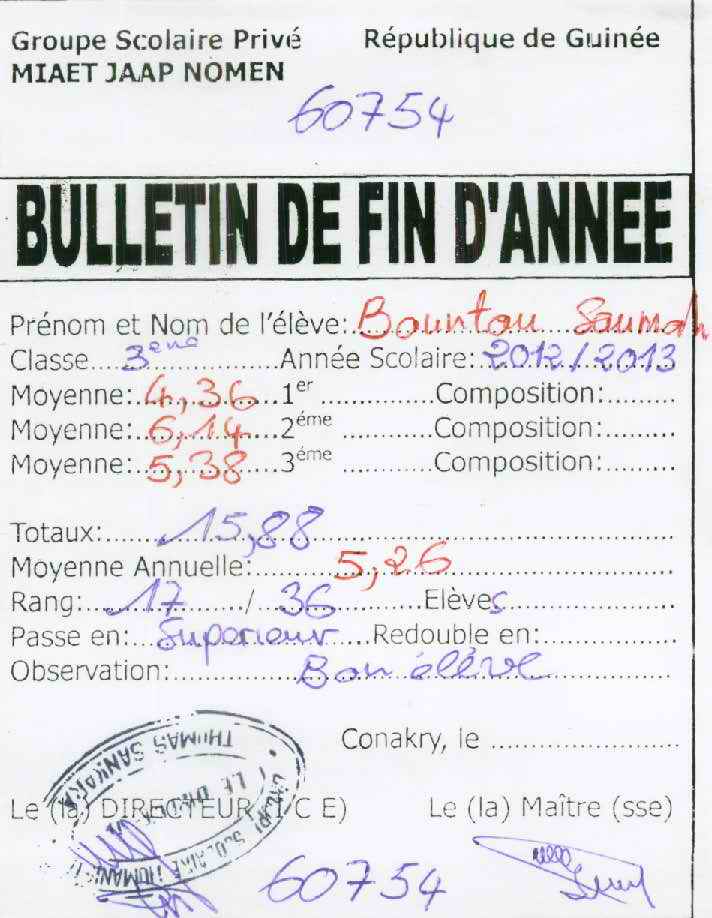 Groupe Scolaire Privé République de Guinée
MIAET JAAP NOMEN
60754
BULLETIN DE FIN D'ANNEE
Prénom et Nom de l'élève:...Bountou Soumah
Classe....3ème....................Année Scolaire:.2012/2013
Moyenne:.4,36...1er ..............Composition:.........
Moyenne:.6,14...2éme ...........Composition:.........
Moyenne:.5,38...3éme ...........Composition:.........
Totaux:......15,88.............................................
Moyenne Annuelle:..........5,26...........................
Rang:..17......../..36..............Elèves....................
Passe en:...Superieur....Redouble en:.................
Observation:...............Bon élève................
THOMAS SANKARA
Conakry, le ........................
Le (la) DIRECTEUR (I C E) Le (la) Maître (sse)
60754